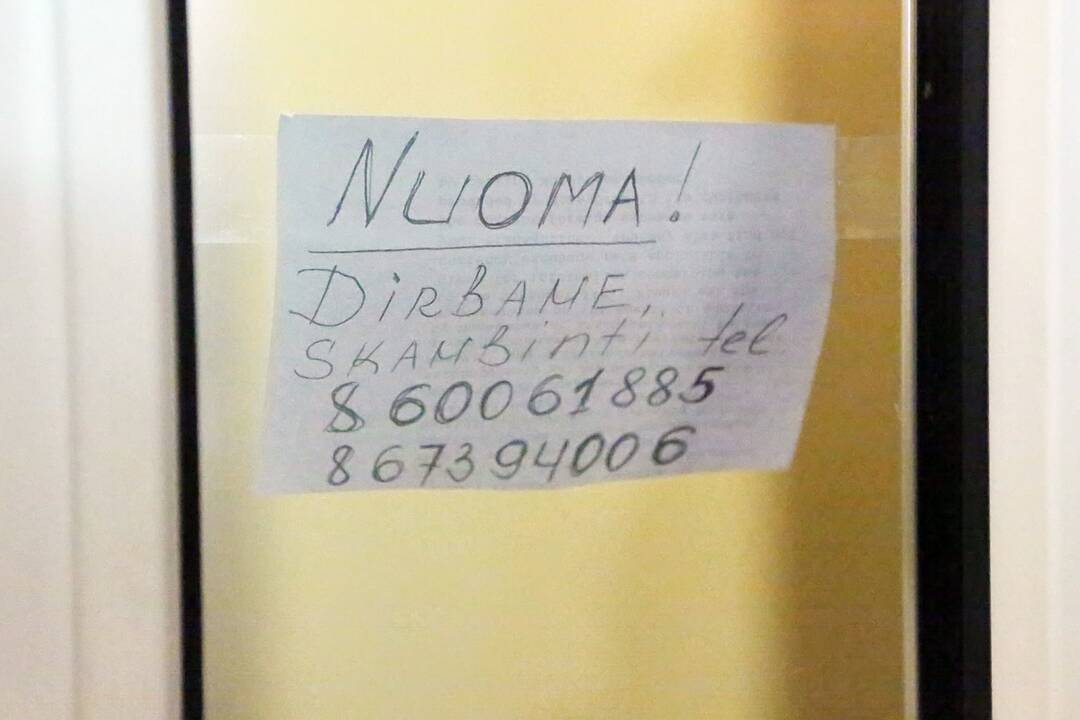 NUOMA!
DiRBAME,
SKAMBinti tel
8 60061885
867394006